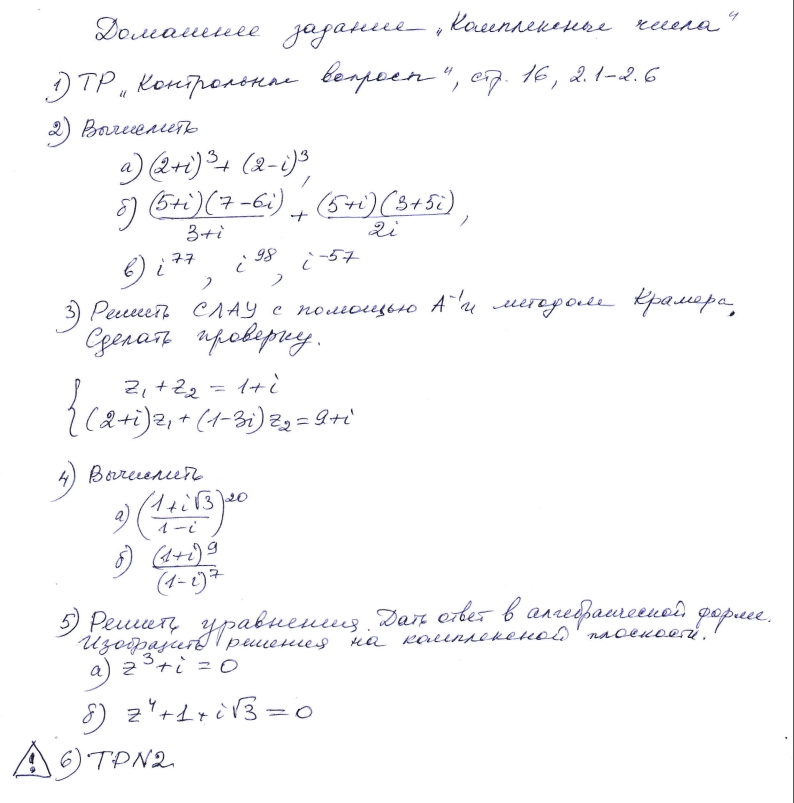 Домашнее задание „Комплексные числа“
1) ТР „Контрольные вопросы“, стр. 16, 2.1–2.6
2) Вычислить
а) (2+i)³ + (2-i)³,
б) (5+i)(7-6i)/(3+i) + (5+i)(3+5i)/(2i),
в) i⁷⁷, i⁹⁸, i⁻⁵⁷
3) Решить СЛАУ с помощью A⁻¹ и методом Крамера.
Сделать проверку.
{ z₁ + z₂ = 1+i
(2+i)z₁ + (1-3i)z₂ = 9+i
4) Вычислить
а) ((1+i√3)/(1-i))²⁰
б) (1+i)⁹/(1-i)⁷
5) Решить уравнения. Дать ответ в алгебраической форме.
Изобразить решения на комплексной плоскости.
а) z³ + i = 0
б) z⁴ + 1 + i√3 = 0
! 6) ТРN2.